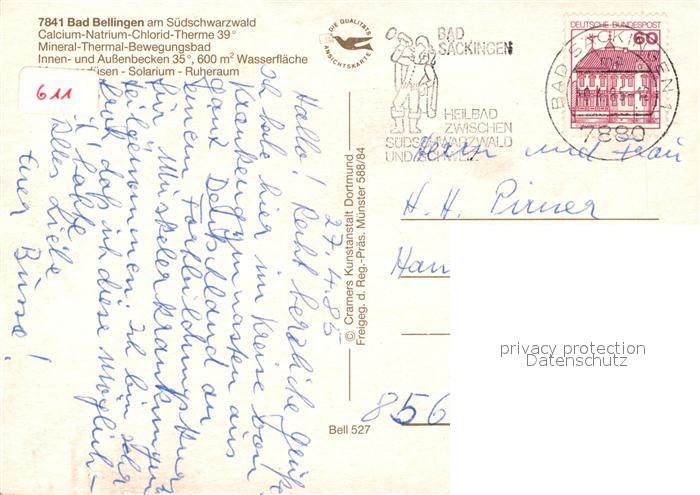 7841 Bad Bellingen am Südschwarzwald
Calcium-Natrium-Chlorid-Therme 39°
Mineral-Thermal-Bewegungsbad
Innen- und Außenbecken 35°, 600 m² Wasserfläche
düsen - Solarium - Ruheraum
611
DIE QUALITÄTS
ANSICHTSKARTE
BAD
SÄCKINGEN
HEILBAD
ZWISCHEN
SÜDSCHWARZWALD
UND
DEUTSCHE BUNDESPOST
60
BAD SÄCKINGEN 1
7880
27.4.85
Hallo! Recht herzliche Grüße
Ich hole hier im Kreise von
Krankengymnasten aus
ganz Deutschland an
einem Fortbildungskurs
für Muskelerkrankungen
teilgenommen. Ich bin sehr
froh, daß ich diese Möglich-
hatte
Alles Liebe
Eure Busse!
Herrn und Frau
H. H. Pirner
Han
856
© Cramers Kunstanstalt Dortmund
Freigeg. d. Reg.-Präs. Münster 588/84
Bell 527
privacy protection
Datenschutz